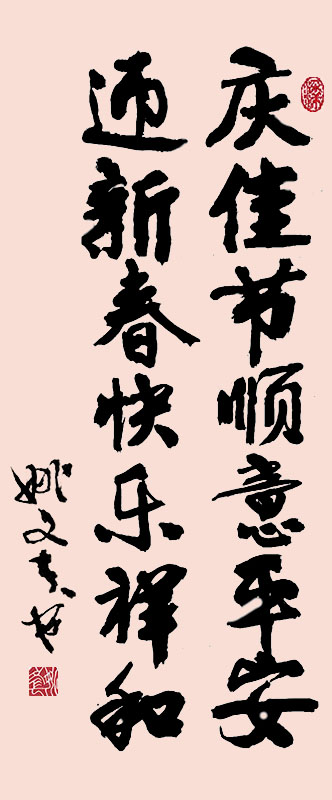 庆佳节顺意平安
迎新春快乐祥和